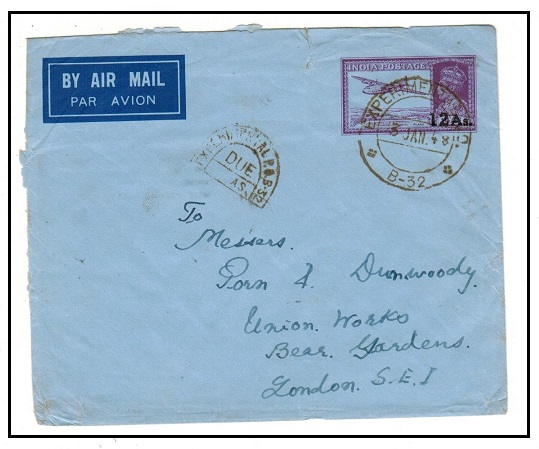 BY AIR MAIL
PAR AVION
INDIA POSTAGE
12 As.
EXPERIMENTAL P.O.
3 JAN. 48
B-32
EXPERIMENTAL P.O. B-32
DUE
AS.
To
Messers.
Porn & Dunwoody.
Union. Works
Bear. Gardens.
London. S.E.I